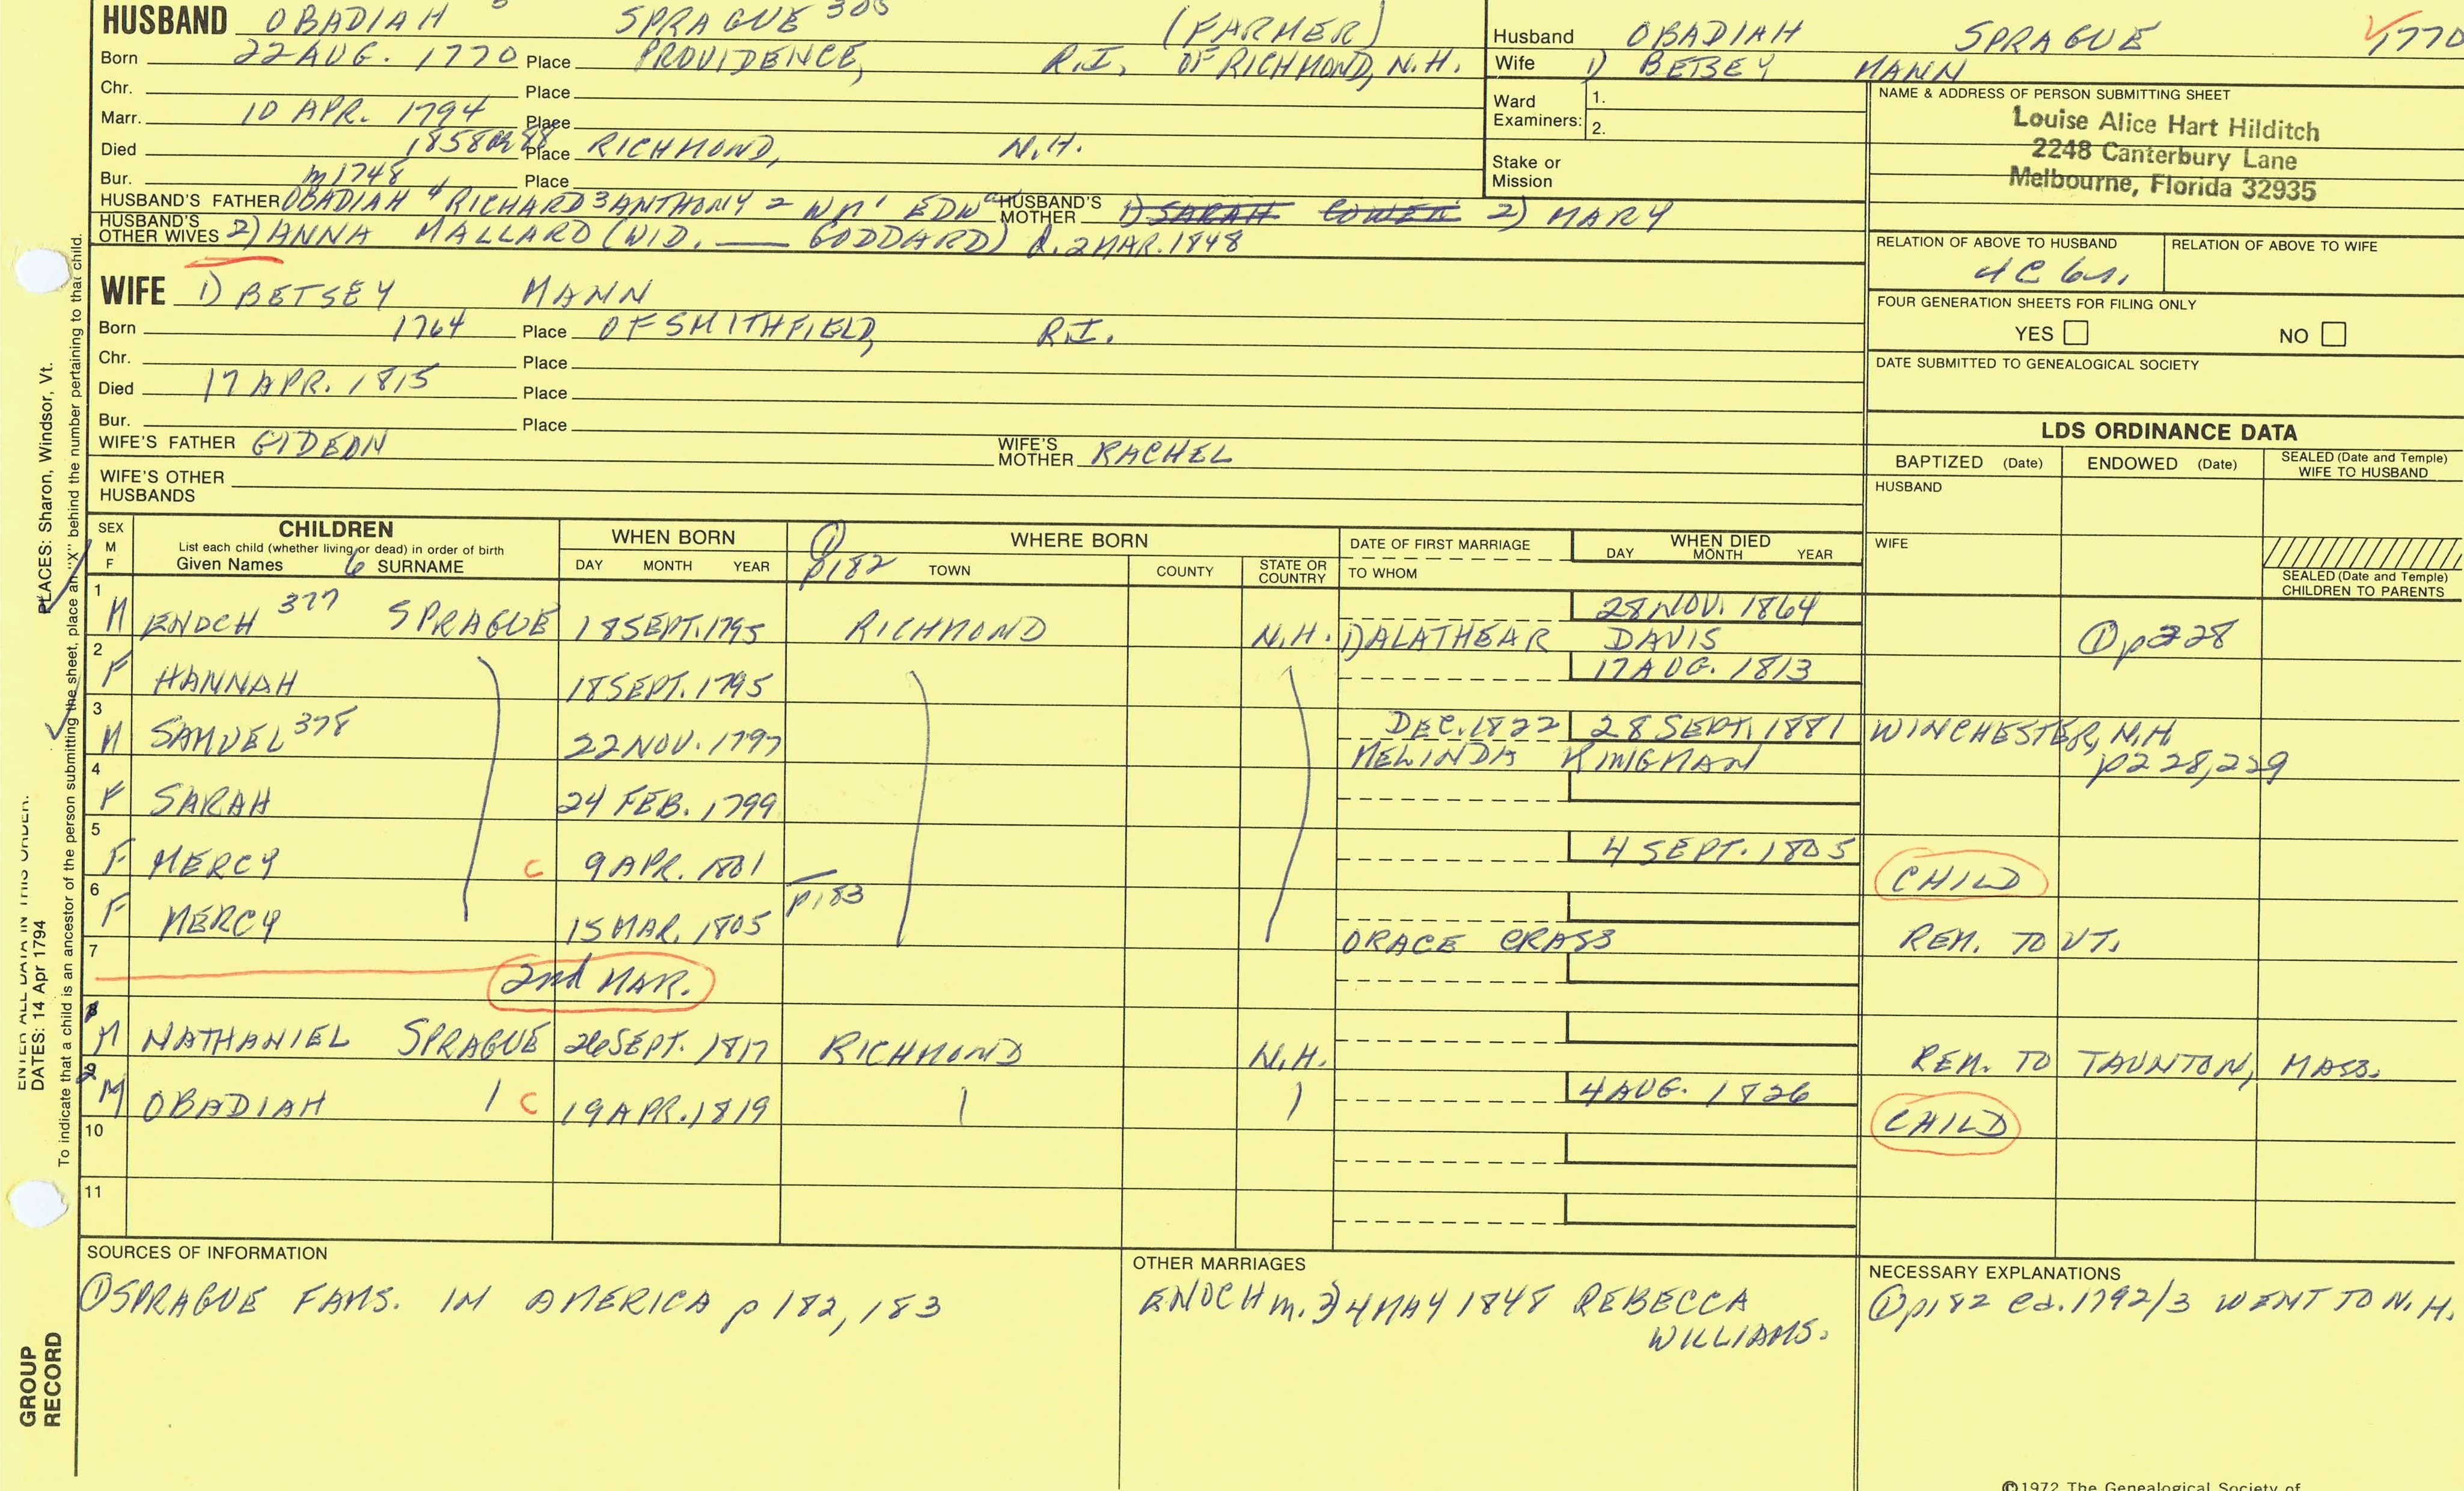 HUSBAND OBADIAH 5 SPRAGUE 305 (FARMER)
Born 22 AUG. 1770 Place PROVIDENCE, R.I. OF RICHMOND, N.H.
Chr. Place
Marr. 10 APR. 1794 Place
Died 1858 Place RICHMOND, N.H.
Bur. m 1748 Place
HUSBAND'S FATHER OBADIAH 4 RICHARD 3 ANTHONY 2 WM 1 EDW HUSBAND'S MOTHER 1) SARAH COWEN 2) MARY
HUSBAND'S OTHER WIVES 2) ANNA MALLARD (WID. ___ GODDARD) d. 2 MAR. 1848
Husband OBADIAH SPRAGUE 1770
Wife 1) BETSEY MANN
Ward Examiners: 1.
2.
Stake or Mission
NAME & ADDRESS OF PERSON SUBMITTING SHEET
Louise Alice Hart Hilditch
2248 Canterbury Lane
Melbourne, Florida 32935
RELATION OF ABOVE TO HUSBAND RELATION OF ABOVE TO WIFE
4C 6
FOUR GENERATION SHEETS FOR FILING ONLY
YES NO
DATE SUBMITTED TO GENEALOGICAL SOCIETY
WIFE 1) BETSEY MANN
Born 1764 Place OF SMITHFIELD, R.I.
Chr. Place
Died 17 APR. 1815 Place
Bur. Place
WIFE'S FATHER GIDEON WIFE'S MOTHER RACHEL
WIFE'S OTHER HUSBANDS
LDS ORDINANCE DATA
BAPTIZED (Date) ENDOWED (Date) SEALED (Date and Temple) WIFE TO HUSBAND
HUSBAND
WIFE
SEALED (Date and Temple) CHILDREN TO PARENTS
SEX M F CHILDREN List each child (whether living or dead) in order of birth Given Names 6 SURNAME WHEN BORN DAY MONTH YEAR ① p182 WHERE BORN TOWN COUNTY STATE OR COUNTRY DATE OF FIRST MARRIAGE TO WHOM WHEN DIED DAY MONTH YEAR
1 M ENOCH 377 SPRAGUE 18 SEPT. 1795 RICHMOND N.H. 1) ALATHEAR DAVIS 28 NOV. 1864 ① p228
2 F HANNAH 18 SEPT. 1795 17 AUG. 1813
3 M SAMUEL 378 22 NOV. 1797 DEC. 1822 28 SEPT. 1881 WINCHESTER, N.H.
MELINDA KINGMAN p228,229
4 F SARAH 24 FEB. 1799
5 F MERCY C 9 APR. 1801 4 SEPT. 1805 CHILD
6 F MERCY 15 MAR. 1805 p183 ORACE CRASS REM. TO VT.
7 2nd MAR.
8 M NATHANIEL SPRAGUE 26 SEPT. 1817 RICHMOND N.H. REM. TO TAUNTON, MASS.
9 M OBADIAH C 19 APR. 1819 4 AUG. 1826 CHILD
10
11
SOURCES OF INFORMATION
① SPRAGUE FAMS. IN AMERICA p 182, 183
OTHER MARRIAGES
ENOCH m. 4 MAY 1848 REBECCA
WILLIAMS.
NECESSARY EXPLANATIONS
① p182 ca. 1792/3 WENT TO N.H.
©1972 The Genealogical Society of
ENTER ALL DATA IN THIS ORDER:
DATES: 14 Apr 1794
PLACES: Sharon, Windsor, Vt.
To indicate that a child is an ancestor of the person submitting the sheet, place an "X" behind the number pertaining to that child.
GROUP
RECORD